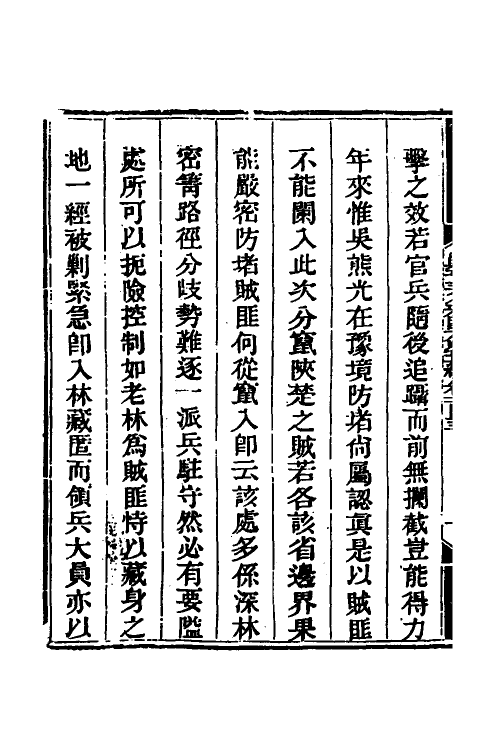 擊之效若官兵隨後追躡而前無攔截豈能得力
年來惟吳熊光在豫境防堵尙屬認眞是以賊匪
不能闌入此次分竄陝楚之賊若各該省邊界果
能嚴密防堵賊匪何從竄入卽云該處多係深林
密箐路徑分歧勢難逐一派兵駐守然必有要隘
處所可以扼險控制如老林爲賊匪恃以藏身之
地一經被剿緊急卽入林藏匿而領兵大員亦以